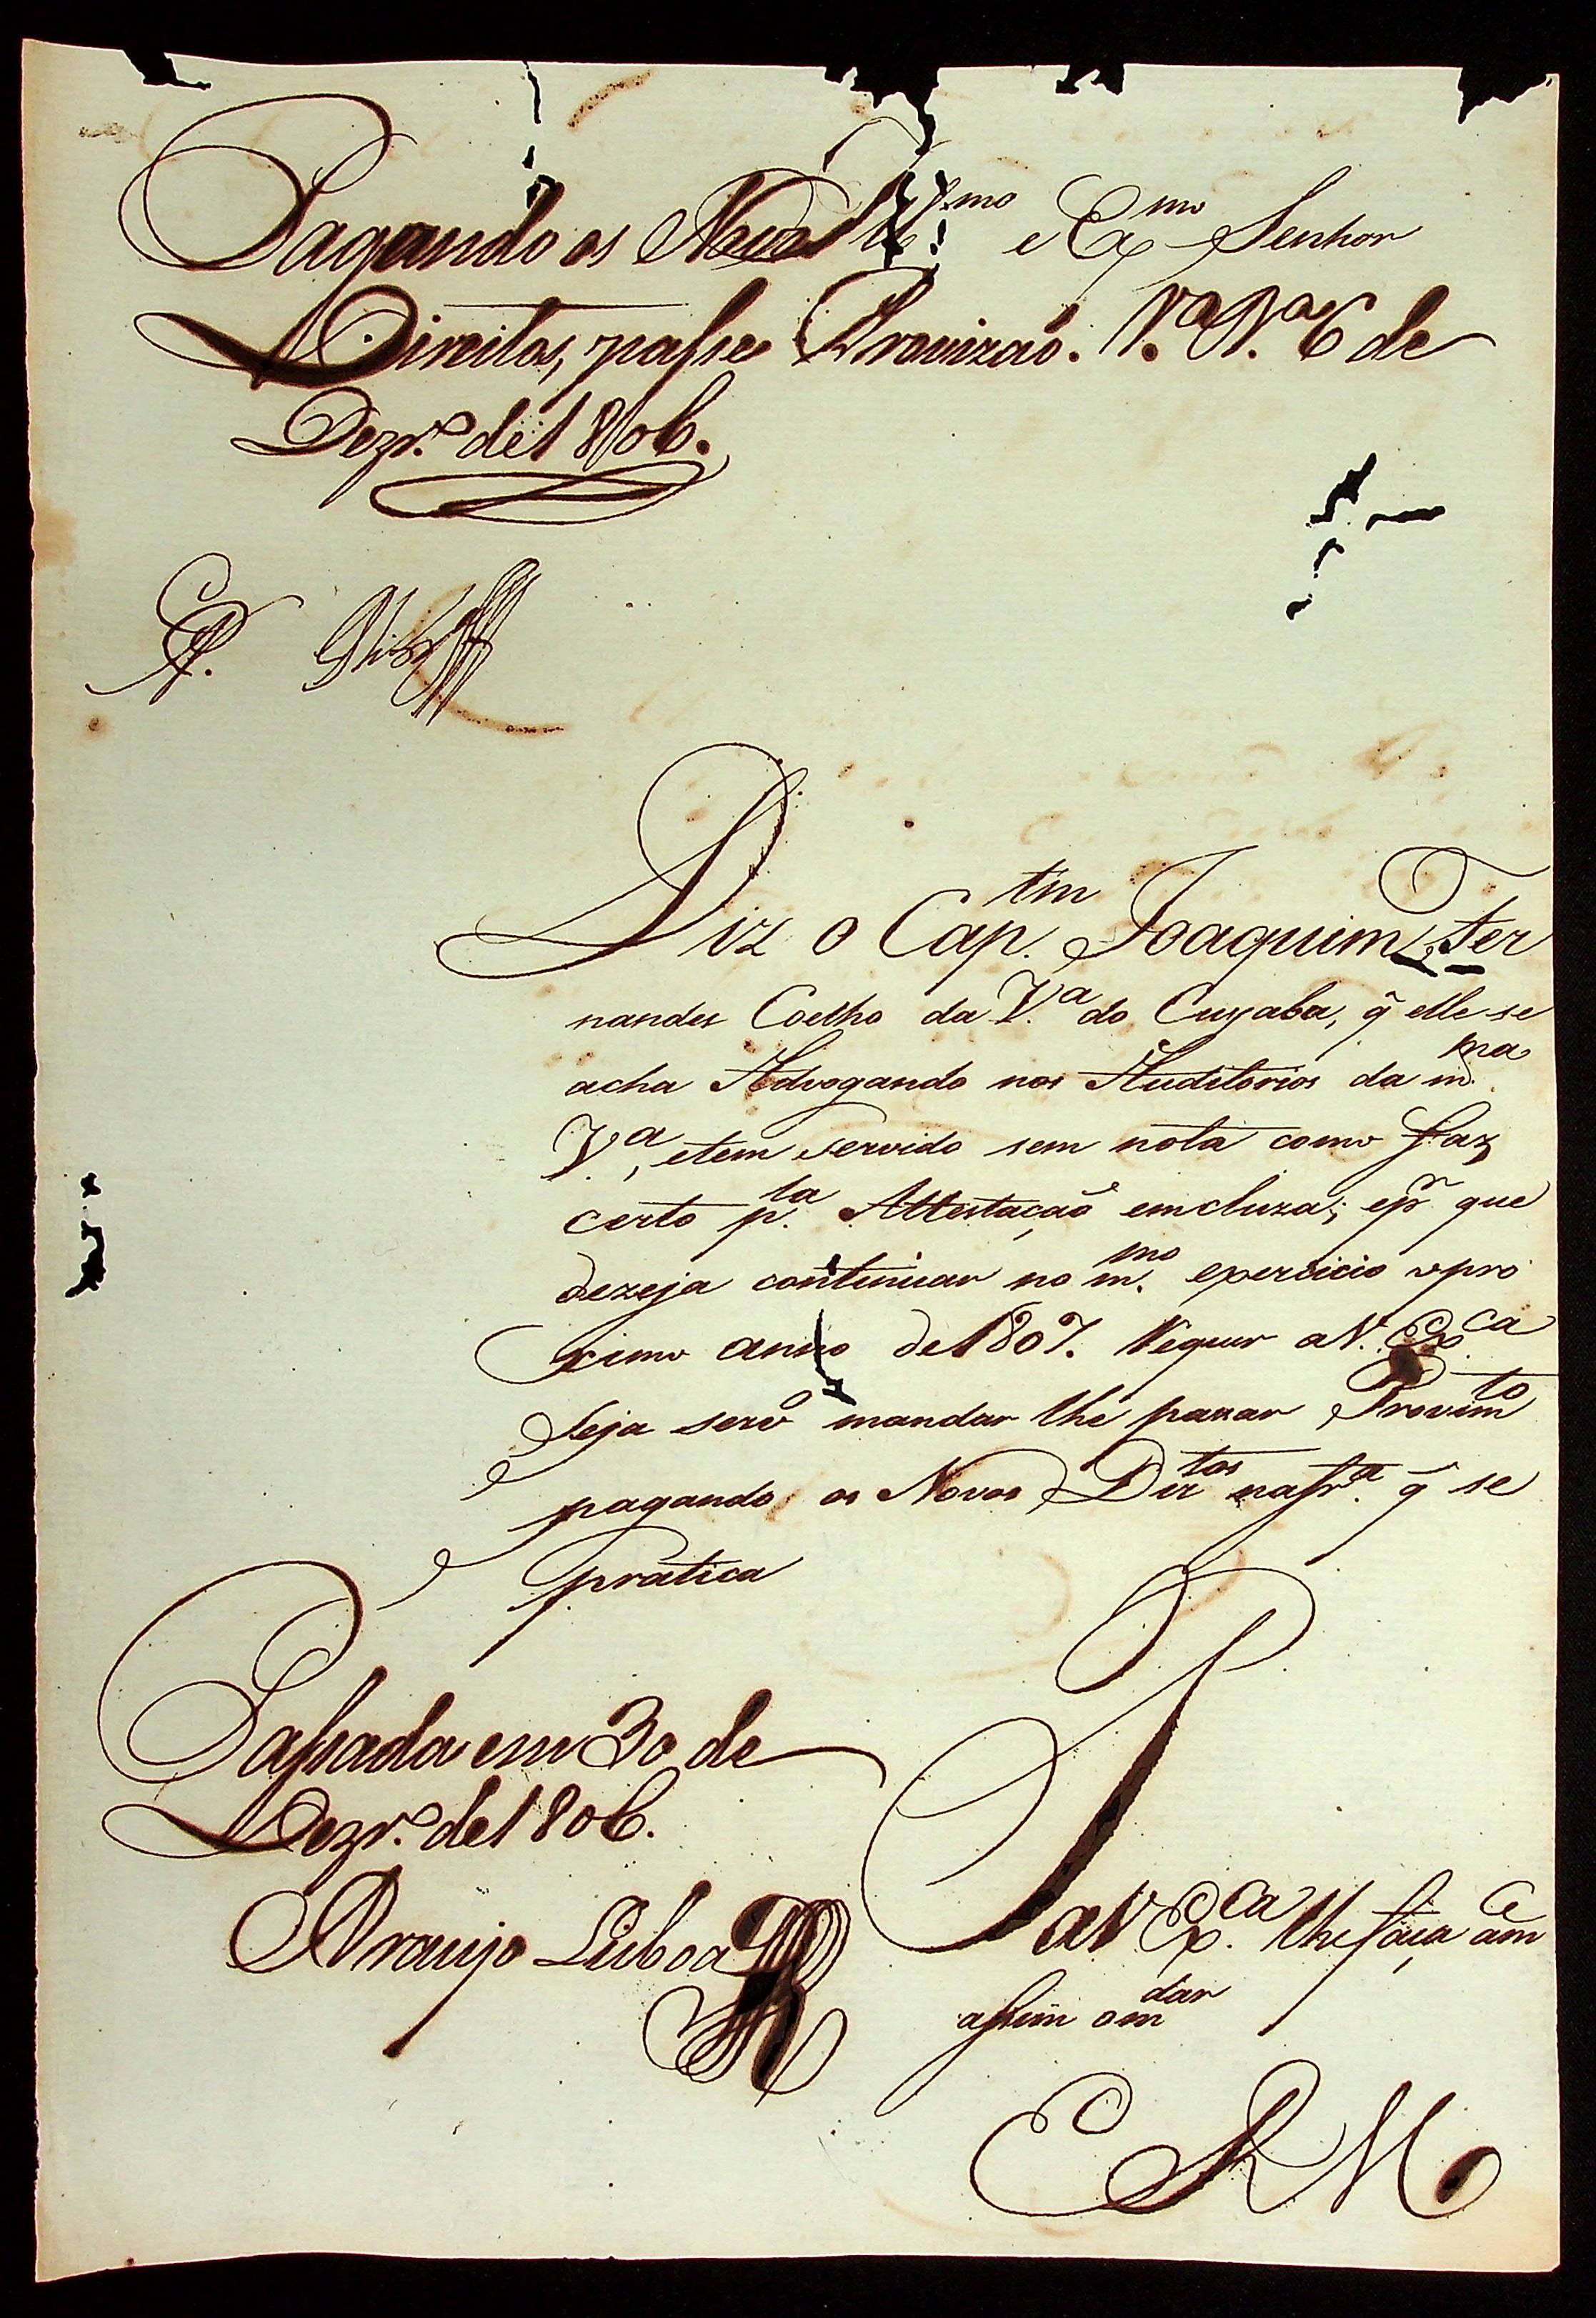 Ill.mo e Ex.mo Senhor
Pagando os Novos
Direitos, passe Provizaõ. V.a N.a 6 de
Dezr.o de 1806.
Diz o Cap.tm Joaquim Fer
nandes Coelho da V.a do Cuyaba, q̃ elle se
acha Advogando nos Auditorios da m.ma
V.a, etem servido sem nota como faz
certo p.la Attestaçaõ emcluza; epr que
dezeja continuar no m.mo exercicio opro
ximo anno de 1807. Requer aV. Ex.ca
Seja servo mandar lhe pasar Provimto
pagando os Novos Dirtos nafr.a q̃ se
pratica
Passada em 30 de
Dezr.o de 1806.
Araujo Lisboa
P aV Ex.ca lhe faça am.ce
assim omdar
E R M